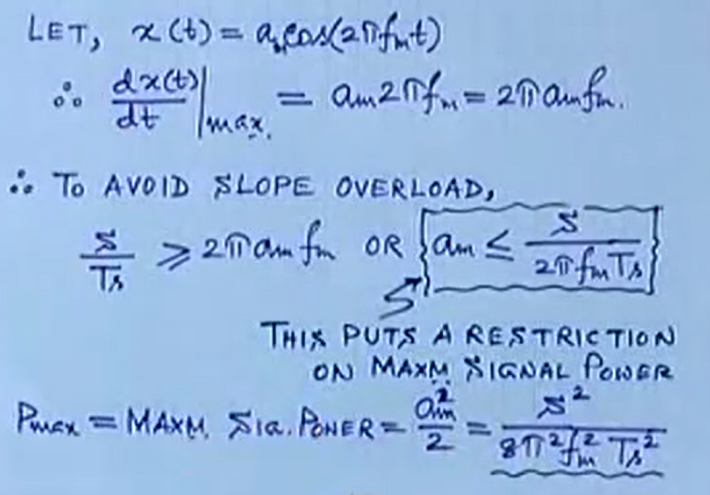 LET, x(t) = aₘcos(2πfₘt)
∴ dx(t)/dt |max. = aₘ2πfₘ = 2πaₘfₘ.
∴ TO AVOID SLOPE OVERLOAD,
S/Tₛ ≥ 2πaₘfₘ OR aₘ ≤ S/2πfₘTₛ
THIS PUTS A RESTRICTION
ON MAXM. SIGNAL POWER
Pmax = MAXM. SIG. POWER = aₘ²/2 = S²/8π²fₘ²Tₛ²